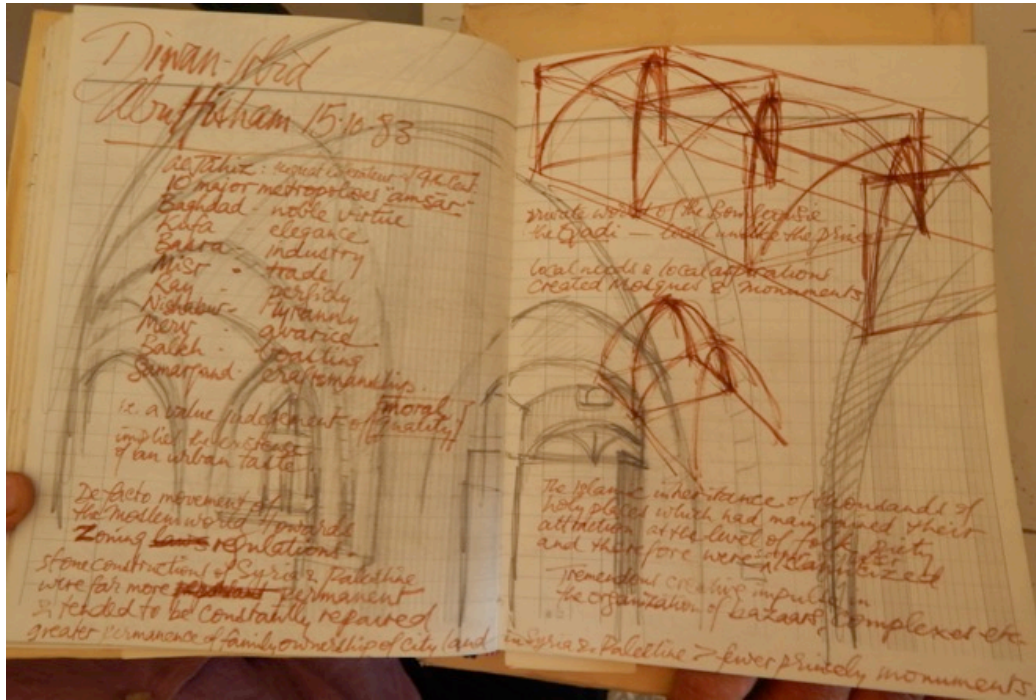 Diwan-Abid
Abu Hisham 15.10.83
al Jahiz: of 9th cent.
10 major metropolises "amsar"
Baghdad - noble virtue
Kufa elegance
Basra - industry
Misr - trade
Ray - perfidy
Nishabur - tyranny
Merv - avarice
Balkh - boasting
Samarqand - craftsmanship.
i.e. a value judgement of "moral
quality"
implies the existence
of an urban taste
De facto movement of
the Moslem world towards
Zoning laws regulations
stone constructions of Syria & Palestine
were far more permanent
& tended to be constantly repaired
greater permanence of family ownership of city land in Syria & Palestine > fewer princely monuments
private world of the bourgeoisie
the Qadi — local unlike the prince
local needs & local aspirations
created mosques & monuments
The Islamic inheritance of thousands of
holy places which had maintained their
attraction at the level of folk piety
and therefore were later islamicized
Tremendous creative impulse in
the organization of bazaars, complexes etc